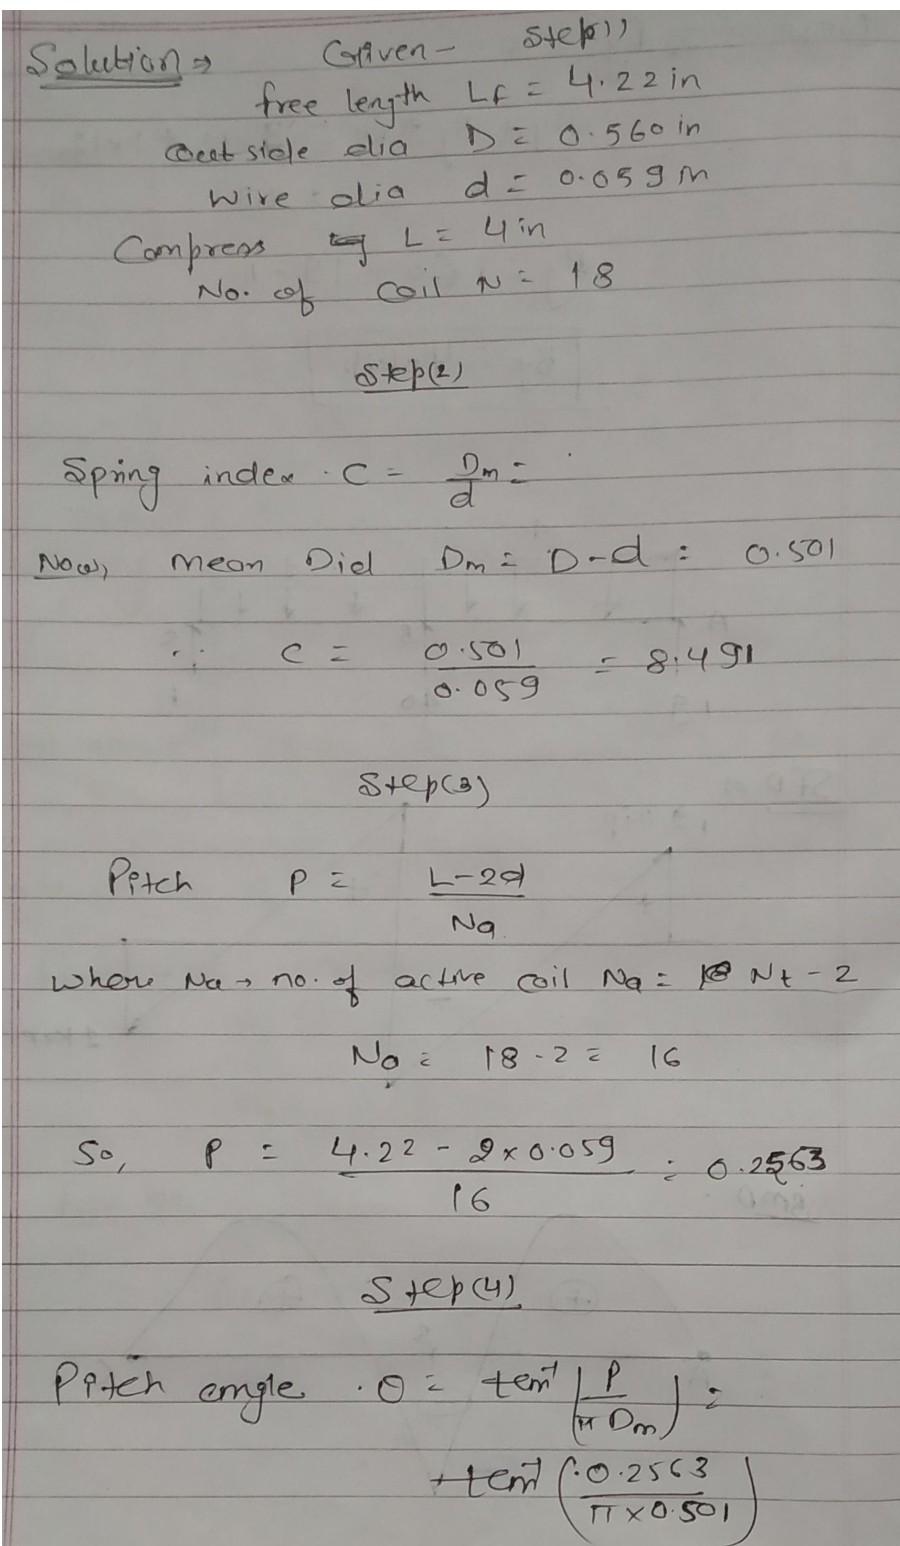 Solution ⇒ Given - Step 1)
free length Lf = 4.22 in
Outside dia D = 0.560 in
Wire dia d = 0.059 in
Compress L = 4 in
No. of coil N = 18
Step(2)
Spring index C = Dm/d =
Now, mean Did Dm = D-d = 0.501
∴ C = 0.501/0.059 = 8.491
Step(3)
Pitch P = L-2d/Na
where Na → no. of active coil Na = Nt - 2
Na = 18 - 2 = 16
So, P = 4.22 - 2 x 0.059/16 = 0.2563
Step(4)
Pitch angle . θ = tan⁻¹ (P/π Dm) =
tan⁻¹ (0.2563/π x 0.501)